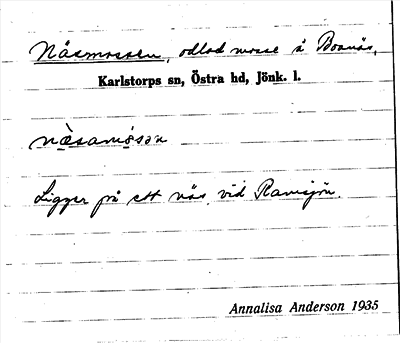 Näsmossen, odlad mosse å Boanäs,
Karlstorps sn, Östra hd, Jönk. l.
næ̀samòsən
Ligger på ett näs vid Ramsjön.
Annalisa Anderson 1935